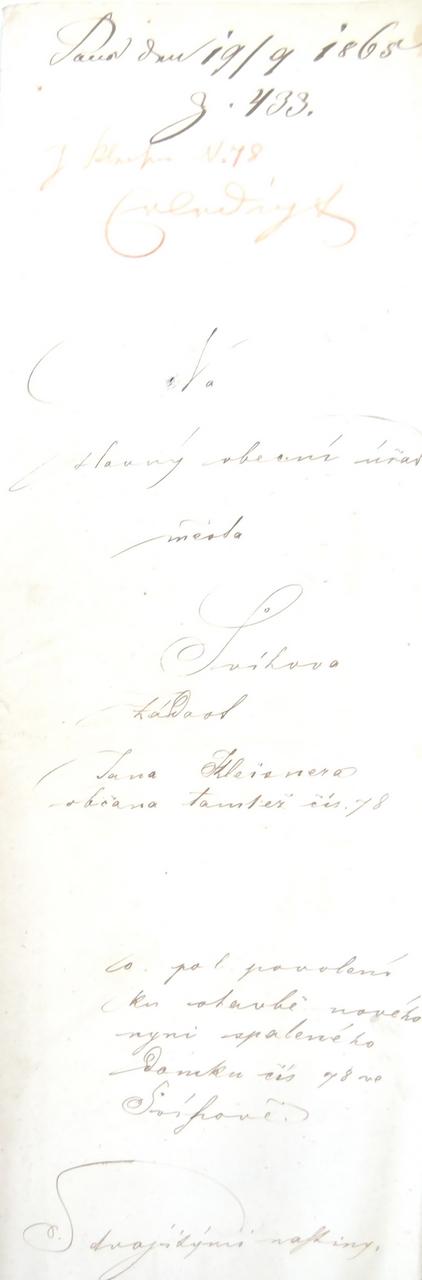 19/9 1865
Z. 433.
N. 78
Na
slavný obecní úřad
města
Švihova
žádost
Jana Kleisnera
občana tamtéž čís. 78
o pol. povolení
ku stavbě nového
nyni spaleného
domku čís 78 ve
Švihově.
S dvojitými nástiny.